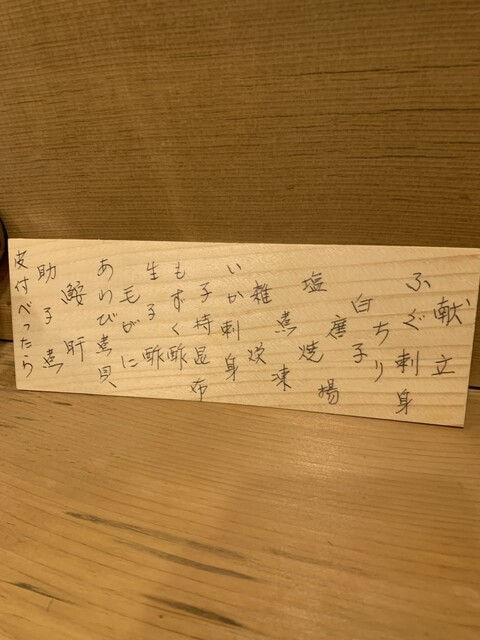 献立
ふぐ刺身
ちり
白子
唐揚
塩焼
煮凍
雑炊
いか刺身
子持昆布
もずく酢
生子酢
毛がに
あわび煮貝
鮟肝
助子煮
皮付べったら